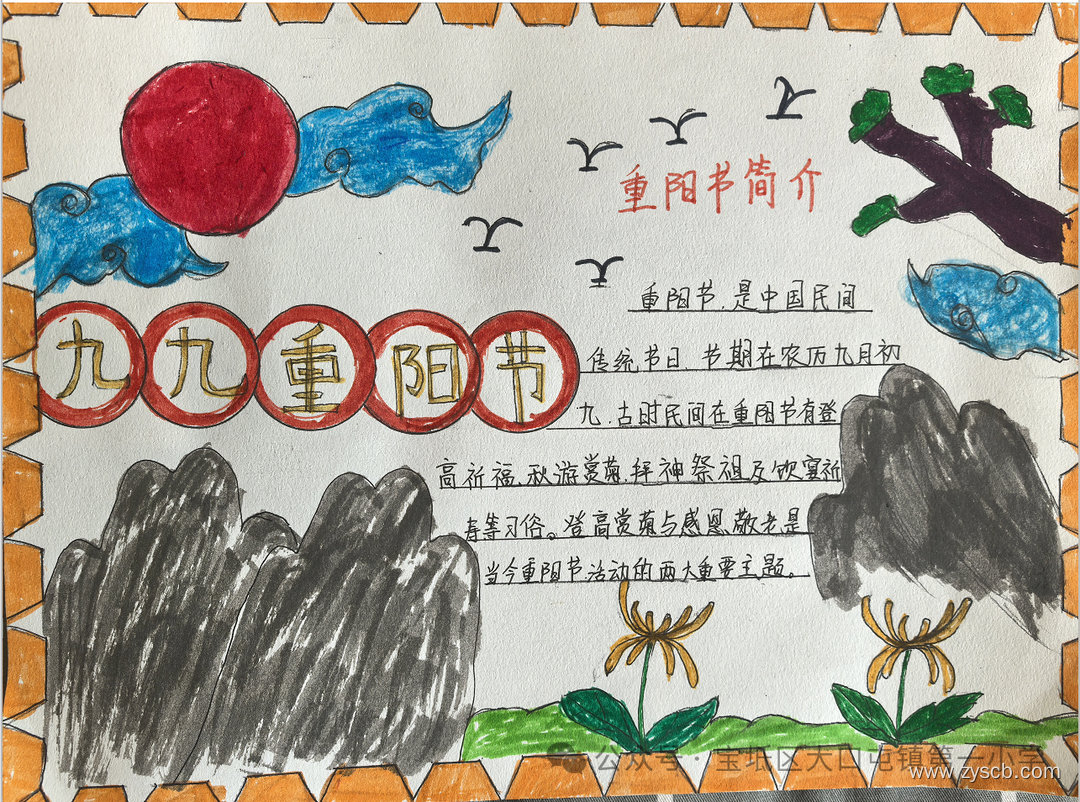 重阳节简介
九九重阳节
重阳节,是中国民间
传统节日,节期在农历九月初
九.古时民间在重阳节有登
高祈福,秋游赏菊,拜神祭祖及饮宴祈
寿等习俗。登高赏菊与感恩敬老是
当今重阳节活动的两大重要主题。
公众号·宝坻区大口屯镇第一小学
www.zyscb.com